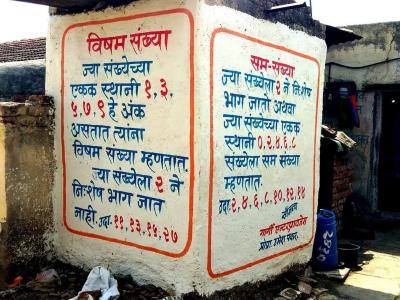 विषम संख्या
ज्या संख्येच्या
एकक स्थानी १,३,
५,७,९ हे अंक
असतात त्यांना
विषम संख्या म्हणतात.
ज्या संख्येला २ ने
निःशेष भाग जात
नाही. उदा. ११,१३,१५,२७
सम-संख्या
ज्या संख्येला २ ने निःशेष
भाग जातो अथवा
ज्या संख्येच्या एकक
स्थानी 0,२,४,६,८
संख्येला सम संख्या
म्हणतात.
उदा. २,४,६,८,१०,१२,१४
सौजन्य